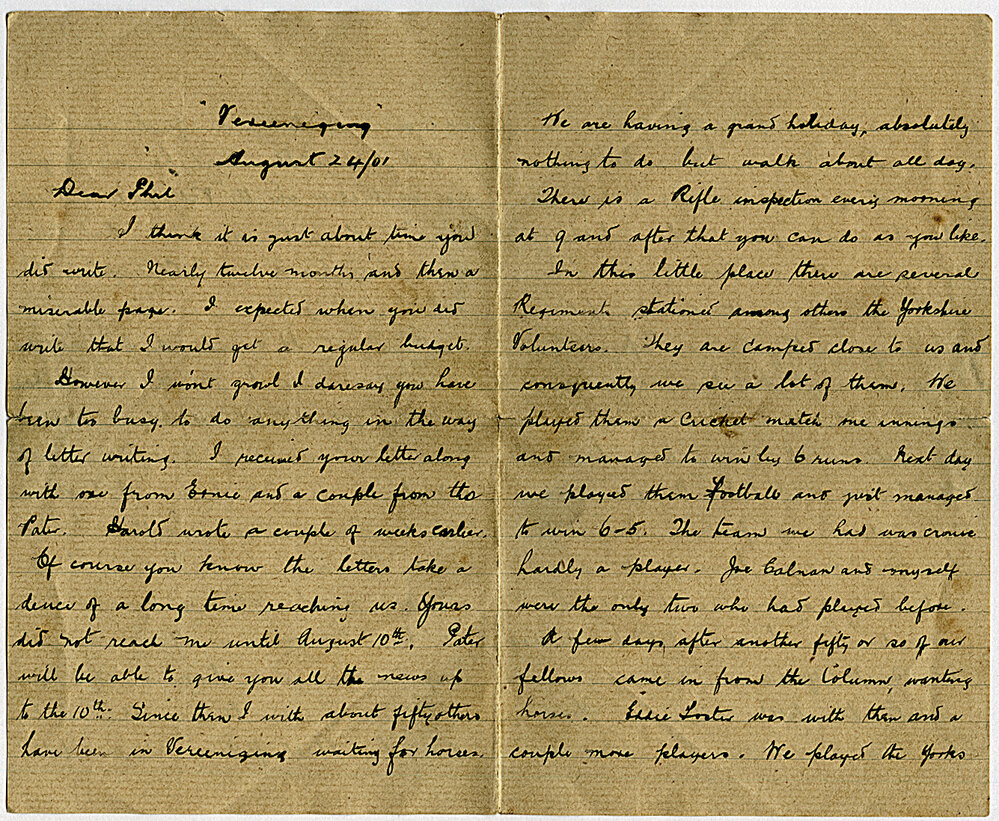 "Vereeniging"
August 24/01
Dear Phil
I think it is just about time you
did write. Nearly twelve months and then a
miserable page. I expected when you did
write that I would get a regular budget.
However I won't growl I daresay you have
been too busy to do anything in the way
of letter writing. I received your letter along
with one from Ernie and a couple from the
Pater. Harold wrote a couple of weeks earlier.
Of course you know the letters take a
deuce of a long time reaching us. Yours
did not reach me until August 10th. Pater
will be able to give you all the news up
to the 10th. Since then I with about fifty others
have been in Vereeniging waiting for horses.
We are having a grand holiday, absolutely
nothing to do but walk about all day.
There is a Rifle inspection every morning
at 9 and after that you can do as you like.
In this little place there are several
Regiments stationed among others the Yorkshire
Volunteers. They are camped close to us and
consequently we see a lot of them. We
played them a Cricket match one innings
and managed to win by 6 runs. Next day
we played them Football and just managed
to win 6-5. The team we had was
hardly a player. Joe Calnan and myself
were the only two who had played before.
A few days after another fifty or so of our
fellows came in from the Column, wanting
horses. Eddie was with them and a
couple more players. We played the Yorks